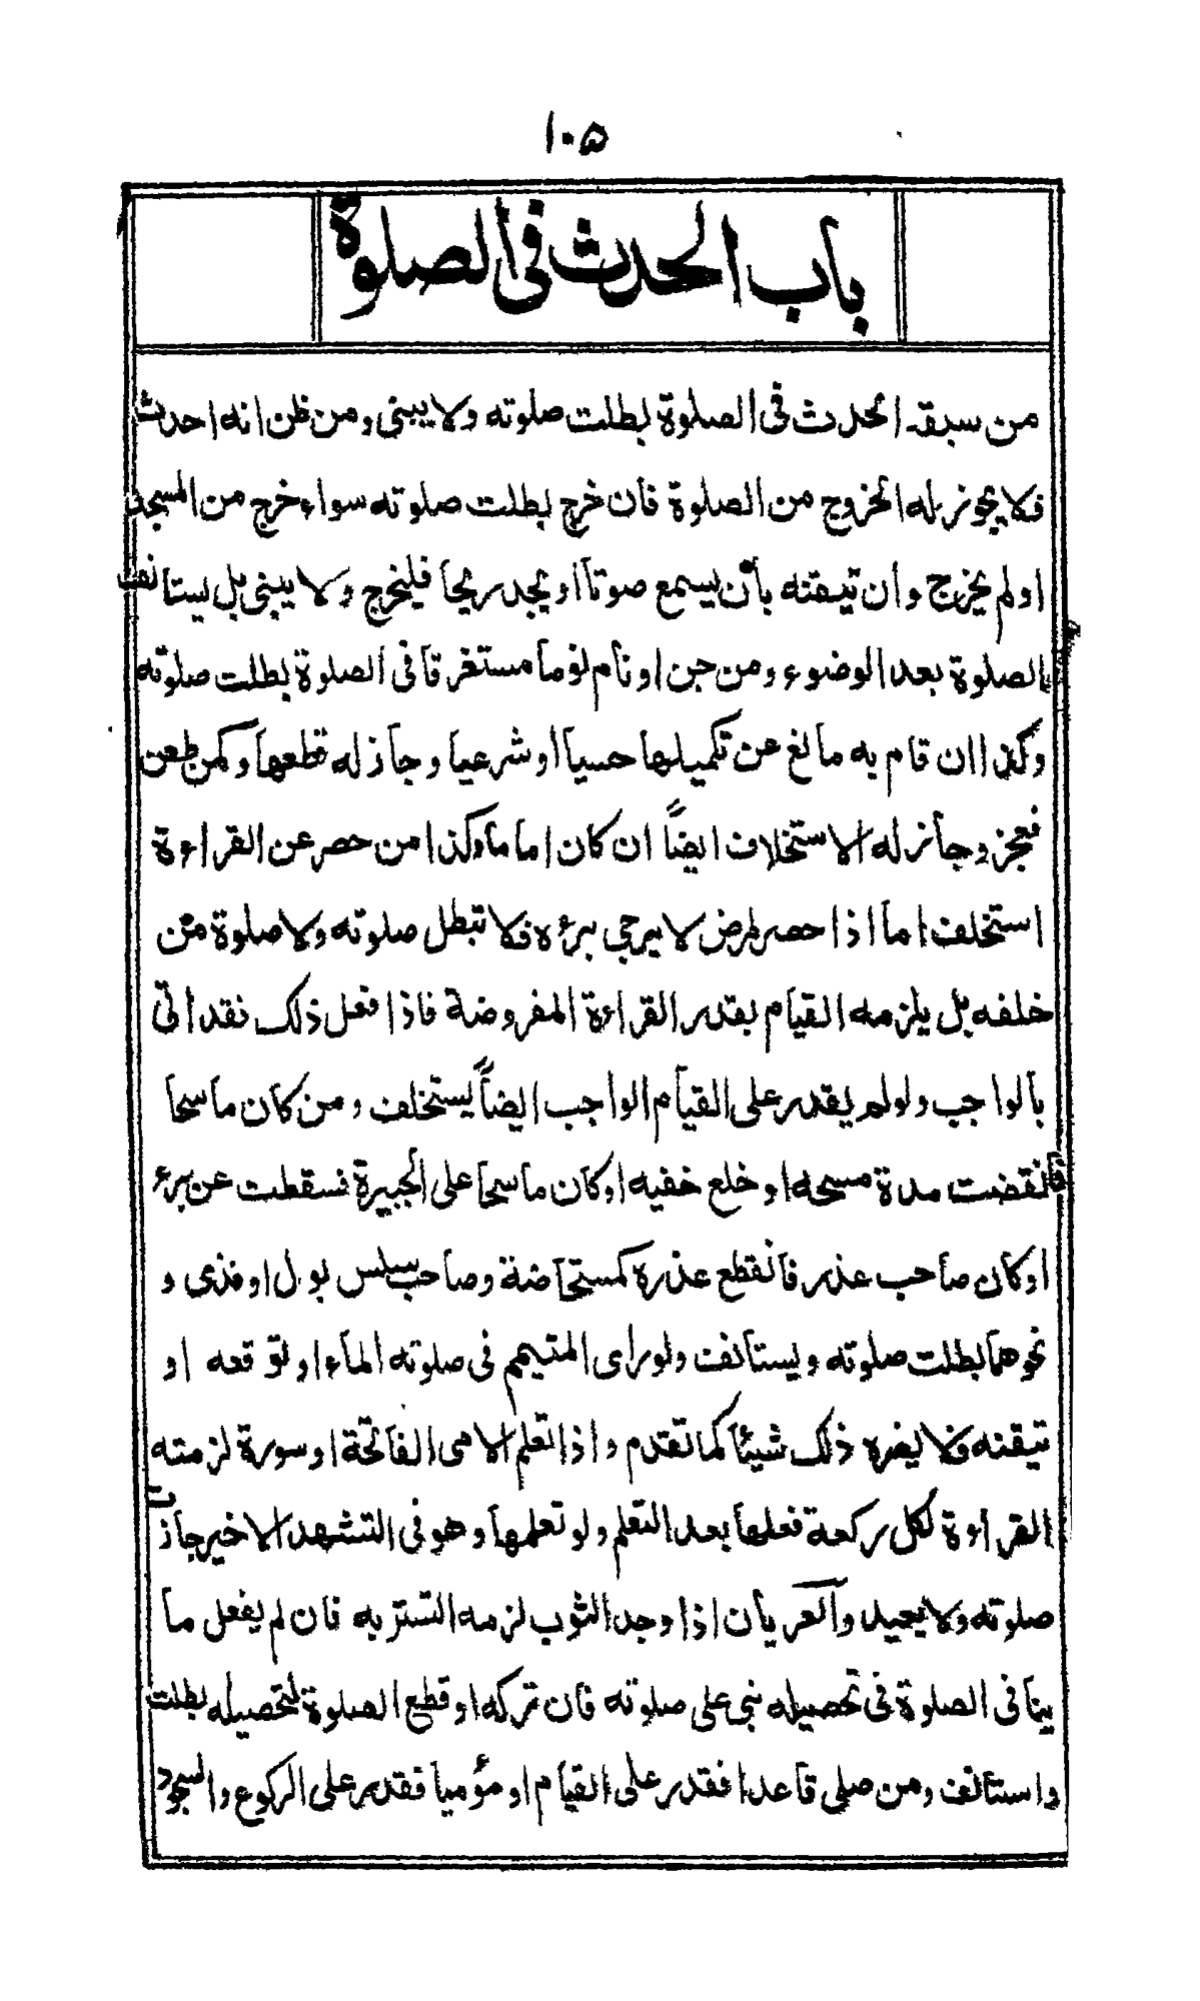 ١٠۵
باب الحدث فى الصلوة
من سبقه الحدث فى الصلوة بطلت صلوته ولا يبنى ومن ظن انه احدث
فلا يجوز له الخروج من الصلوة فان خرج بطلت صلوته سواء خرج من المسجد
او لم يخرج وان تيقنه بأن يسمع صوتا او يجد ريحا فليخرج ولا يبنى بل يستانف
الصلوة بعد الوضوء ومن جن او نام نوما مستغرقا فى الصلوة بطلت صلوته
وكذا ان قام به مانع عن تكميلها حسيا او شرعيا وجاز له قطعها وكمن طعن
فعجز وجاز له الاستخلاف ايضاً ان كان اماما وكذا من حصر عن القراءة
استخلف اما اذا حصر لمرض لا يرجى برءه فلا تبطل صلوته ولا صلوة من
خلفه بل يلزمه القيام بقدر القراءة المفروضة فاذا فعل ذلك فقد اتى
بالواجب ولو لم يقدر على القيام الواجب ايضاً يستخلف ومن كان ماسحا
فانقضت مدة مسحه او خلع خفيه او كان ماسحا على الجبيرة فسقطت عن برء
او كان صاحب عذر فانقطع عذره كمستحاضة وصاحب سلس بول او مذى و
نحوهما بطلت صلوته ويستانف ولو راى المتيمم فى صلوته الماء او توقعه او
تيقنه فلا يضره ذلك شيئا كما تقدم واذا تعلم الامى الفاتحة او سورة لزمته
القراءة لكل ركعة فعلها بعد التعلم ولو تعلمها وهو فى التشهد الاخير جازت
صلوته ولا يعيد والعريان اذا وجد الثوب لزمه التستر به فان لم يفعل ما
ينافى الصلوة فى تحصيله بنى على صلوته فان تركه او قطع الصلوة لتحصيله بطلت
واستانف ومن صلى قاعدا فقدر على القيام او مؤميا فقدر على الركوع والسجود